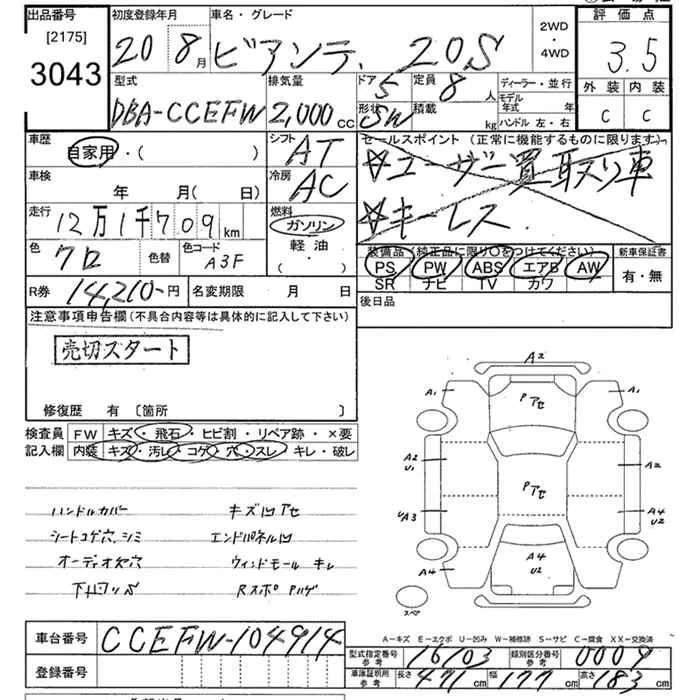 出品番号 初度登録年月 車名・グレード 2WD・4WD 評価点
[2175]
3043 20 8月 ビアンテ 20S 3.5
型式 排気量 ドア 5 定員 8人 ディーラー・並行 外装 内装
DBA-CCEFW 2,000cc 形状 SW 積載 kg モデル年式 年 ハンドル 左・右 C C
車歴 自家用・( ) シフト AT セールスポイント(正常に機能するものに限ります)
車検 年 月(日) 冷房 AC ☆ユーザー買取り車
走行 12万1千709km 燃料 ガソリン 軽油・( ) ☆キーレス
色 クロ 色替 色コード A3F 装備品(純正品に限り○をつけてください) 新車保証書
PS PW ABS エアB AW 有・無
SR ナビ TV カワ
R券 14,210円 名変期限 月 日 後日品
注意事項申告欄(不具合内容等は具体的に記入して下さい)
売切スタート
修復歴 有 〔箇所 〕
検査員 FW キズ・飛石・ヒビ割・リペア跡・×要
記入欄 内装 キズ・汚レ・コゲ・穴・スレ・キレ・破レ
ハンドルカバー キズ凹アセ
シートコゲ穴、シミ エンドパネル凹
オーディオ穴 ウィンドモール キレ
下回リS Rスポ Pハゲ
A2
A1 Pアセ A1
A2 U1 A2
Pアセ
UA3 A4 U2
A4 A4 U2
スペア
A-キズ E-エクボ U-凹み W-補修跡 S-サビ C-腐食 XX-交換済
車台番号 CCEFW-104914
型式指定番号 参考 16103 類別区分番号 参考 0009
登録番号
車庫証明用 参考 長さ 471cm 幅 177cm 高さ 183cm